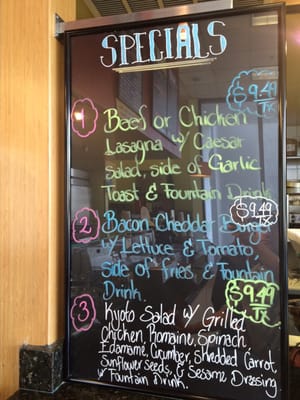 SPECIALS
$9.49
Tx
1 Beef or Chicken
Lasagna w/ Caesar
Salad, side of Garlic
Toast & Fountain Drink
$9.49
Tx
2 Bacon Cheddar Burger
w/ Lettuce & Tomato,
side of fries, & Fountain
Drink.
$9.49
Tx
3 Kyoto Salad w/ Grilled
Chicken, Romaine, Spinach,
Edamame, Cucumber, Shredded Carrot,
Sunflower Seeds, & Sesame Dressing
w/ Fountain Drink.